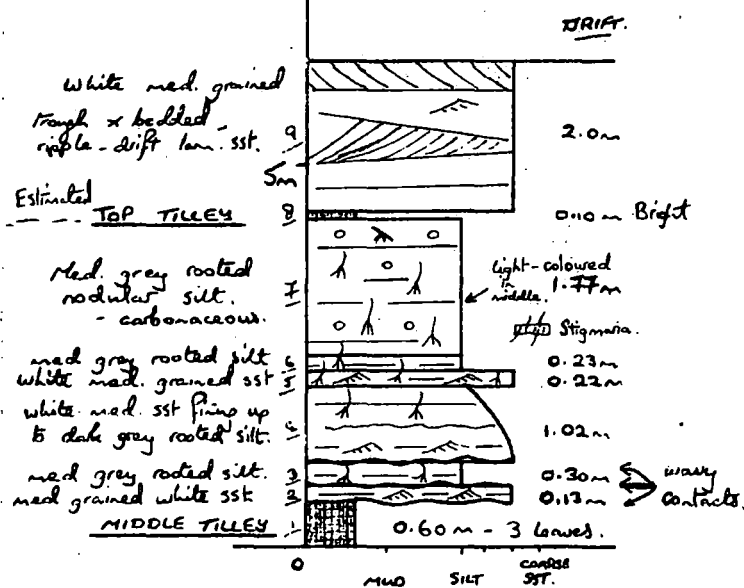 DRIFT.
White med. grained
trough x bedded -
ripple-drift lam. sst.
9
2.0m
5m
Estimated
TOP TILLEY
8
0.10m Bright
Med. grey rooted
nodular silt.
- carbonaceous.
7
light-coloured
in
middle.
1.77m
Stigmaria.
med grey rooted silt
6
0.23m
white med. grained sst
5
0.22m
white med. sst fining up
to dark grey rooted silt.
1.02m
med grey rooted silt.
3
0.30m
wavy
contacts.
med grained white sst
2
0.13m
MIDDLE TILLEY
1
0.60m - 3 leaves.
0
MUD
SILT
COARSE
SST.